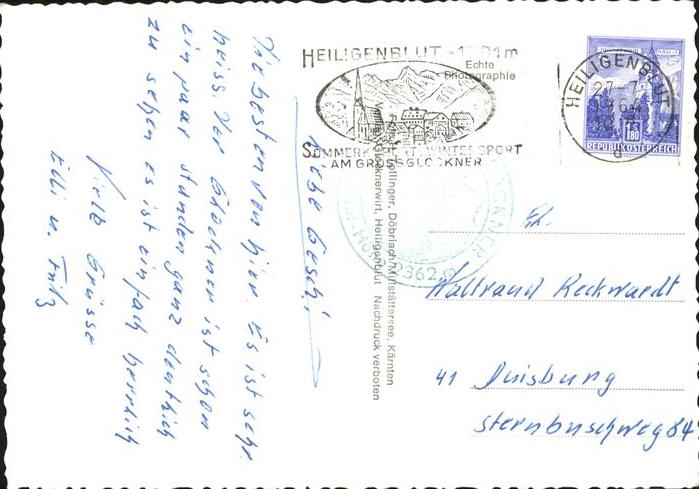 Liebe Gesch.!
Die besten von hier. Es ist sehr
heiss. Der Glockner ist schon
ein paar Stunden ganz deutlich
zu sehen es ist einfach herrlich
Viele Grüsse
Elli u. Fritz
HEILIGENBLUT
Echte
Photographie
SOMMER WINTERSPORT
AM GROSSGLOCKNER
HEILIGENBLUT
27-7
1.80
REPUBLIK ÖSTERREICH
Döbriach/Millstättersee, Kärnten
Glocknerwirt, Heiligenblut Nachdruck verboten
2362
Frl.
Waltraud Keckwardt
41 Duisburg
Sternbuschweg 84